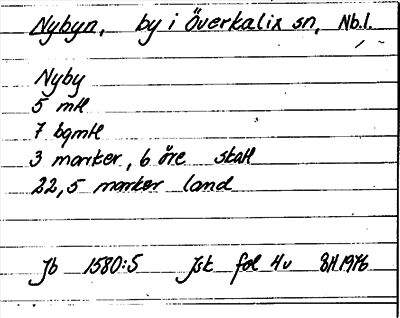 Nybyn, by i Överkalix sn, Nb.l.
Nyby
5 mtl
7 bqmtl
3 marker, 6 öre skatt
22,5 marker land
Jb 1580:5 Jsk fol 4v 1976